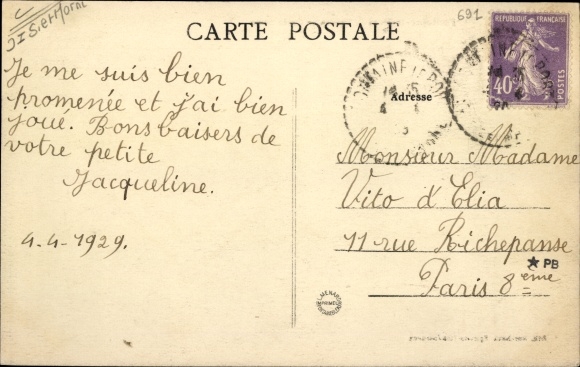 691
CARTE POSTALE
RÉPUBLIQUE FRANÇAISE
40c
Adresse
Je me suis bien
promenée et j'ai bien
joué. Bons baisers de
votre petite
Jacqueline.
4-4-1929.
Monsieur Madame
Vito d'Elia
11 rue Richepanse
Paris 8eme
★ PB